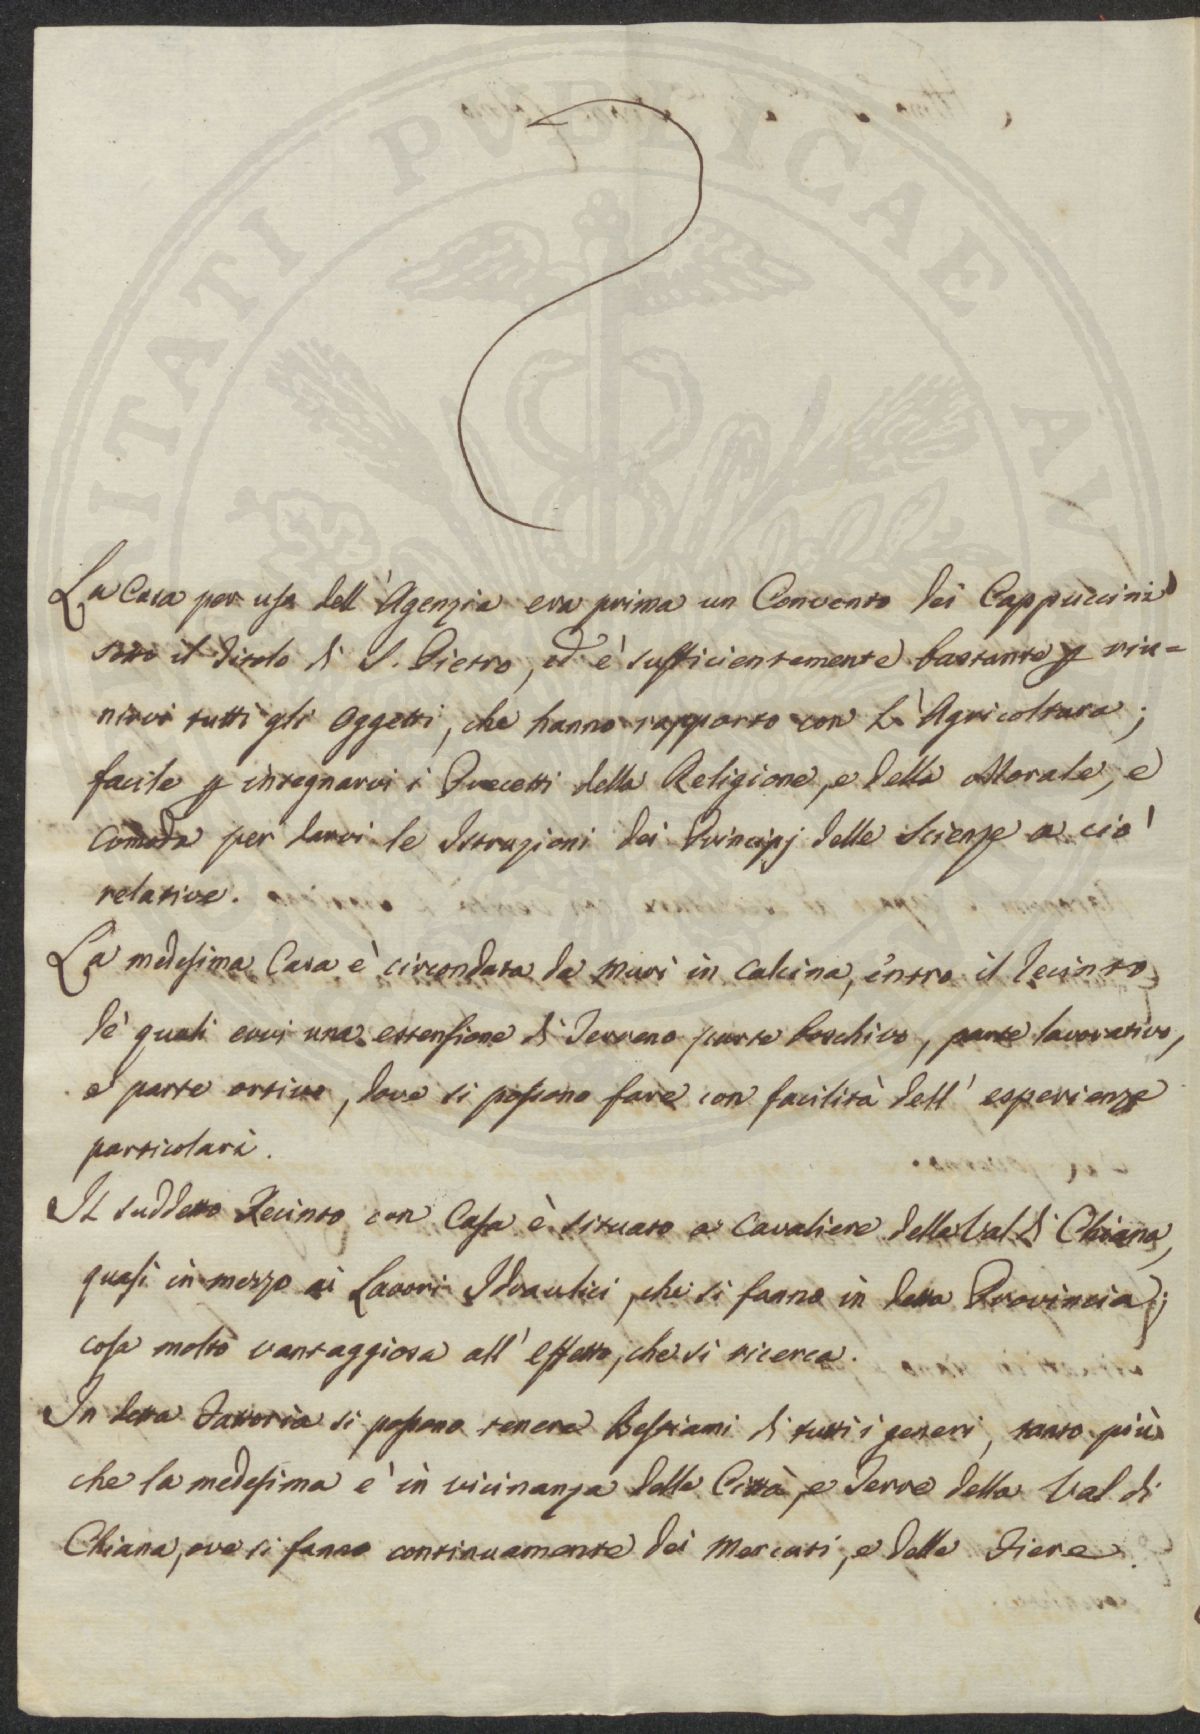 La Casa per uso dell'Agenzia era prima un Convento dei Cappuccini
sotto il titolo di S. Pietro, ed è sufficientemente bastante p riu=
nirvi tutti gli oggetti, che hanno rapporto con L'Agricoltura;
facile p insegnarvi i Precetti della Religione, e della Morale, e
comoda per darvi le Istruzioni dei Principj delle Scienze a ciò
relative.
La medesima Casa è circondata da muri in calcina, entro il Recinto
de' quali evvi una estensione di Terreno parte boschivo, parte lavorativo,
e parte ortivo, dove si possono fare con facilità dell'esperienze
particolari.
Il suddetto Recinto con Casa è situato a Cavaliere della Val di Chiana,
quasi in mezzo ai Lavori Idraulici, che si fanno in detta Provincia;
cosa molto vantaggiosa all'effetto, che si ricerca.
In detta Fattoria si possono tenere Bestiami di tutti i generi, tanto più
che la medesima è in vicinanza delle Città, e Terre della Val di
Chiana, ove si fanno continuamente dei Mercati, e delle Fiere.